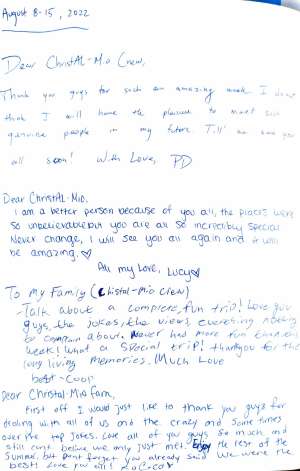 August 8-15, 2022
Dear ChristAl-Mio Crew,
Thank you guys for such an amazing week. I don't
think I will have the pleasure to meet such
genuine people in my future. I'll see you
all soon! With Love, PD
Dear ChristAL-Mio.
I am a better person because of you all, the places were
so unbelievable but you are all so incredibly special
Never change, I will see you all again and it will
be amazing.♡
All my love, Lucy♡
To My Family (Chistal-Mio Crew)
-Talk about a complete, fun trip! Love you
guys, the jokes, the views, everything nothing
to complain about. Never had more fun
week! What a special trip! thankyou for the
long living memories. Much Love
best-Coop
Dear Christal-Mio fam,
First off I would just like to thank you guys for
dealing with all of us and the crazy and some times
over the top jokes. Love all of you guys so much and
still cant believe we only just met. Enjoy the rest of the
Summer, but dont forget you already said we were the
best! Love you all!